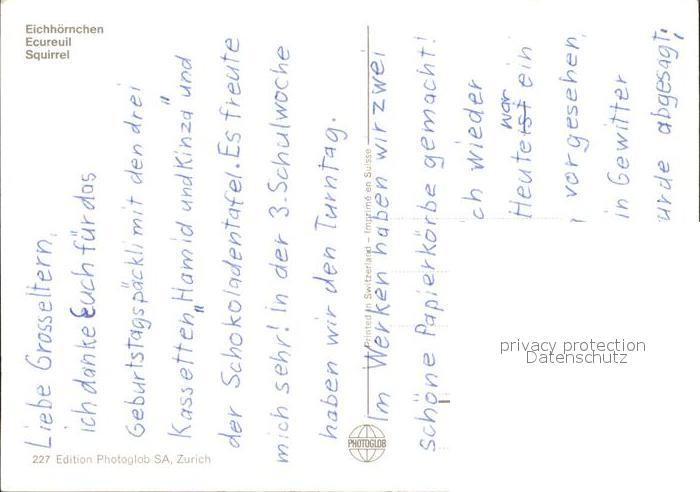 Eichhörnchen
Ecureuil
Squirrel
Liebe Grosseltern,
ich danke Euch für das
Geburtstagspäckli mit den drei
Kassetten „Hamid und Kinza" und
der Schokoladentafel. Es freute
mich sehr! In der 3. Schulwoche
haben wir den Turntag.
Im Werken haben wir zwei
schöne Papierkörbe gemacht!
ch wieder
war
Heute ist ein
vorgesehen,
in Gewitter
urde abgesagt;
Printed in Switzerland – Imprimé en Suisse
PHOTOGLOB
227 Edition Photoglob SA, Zurich
privacy protection
Datenschutz